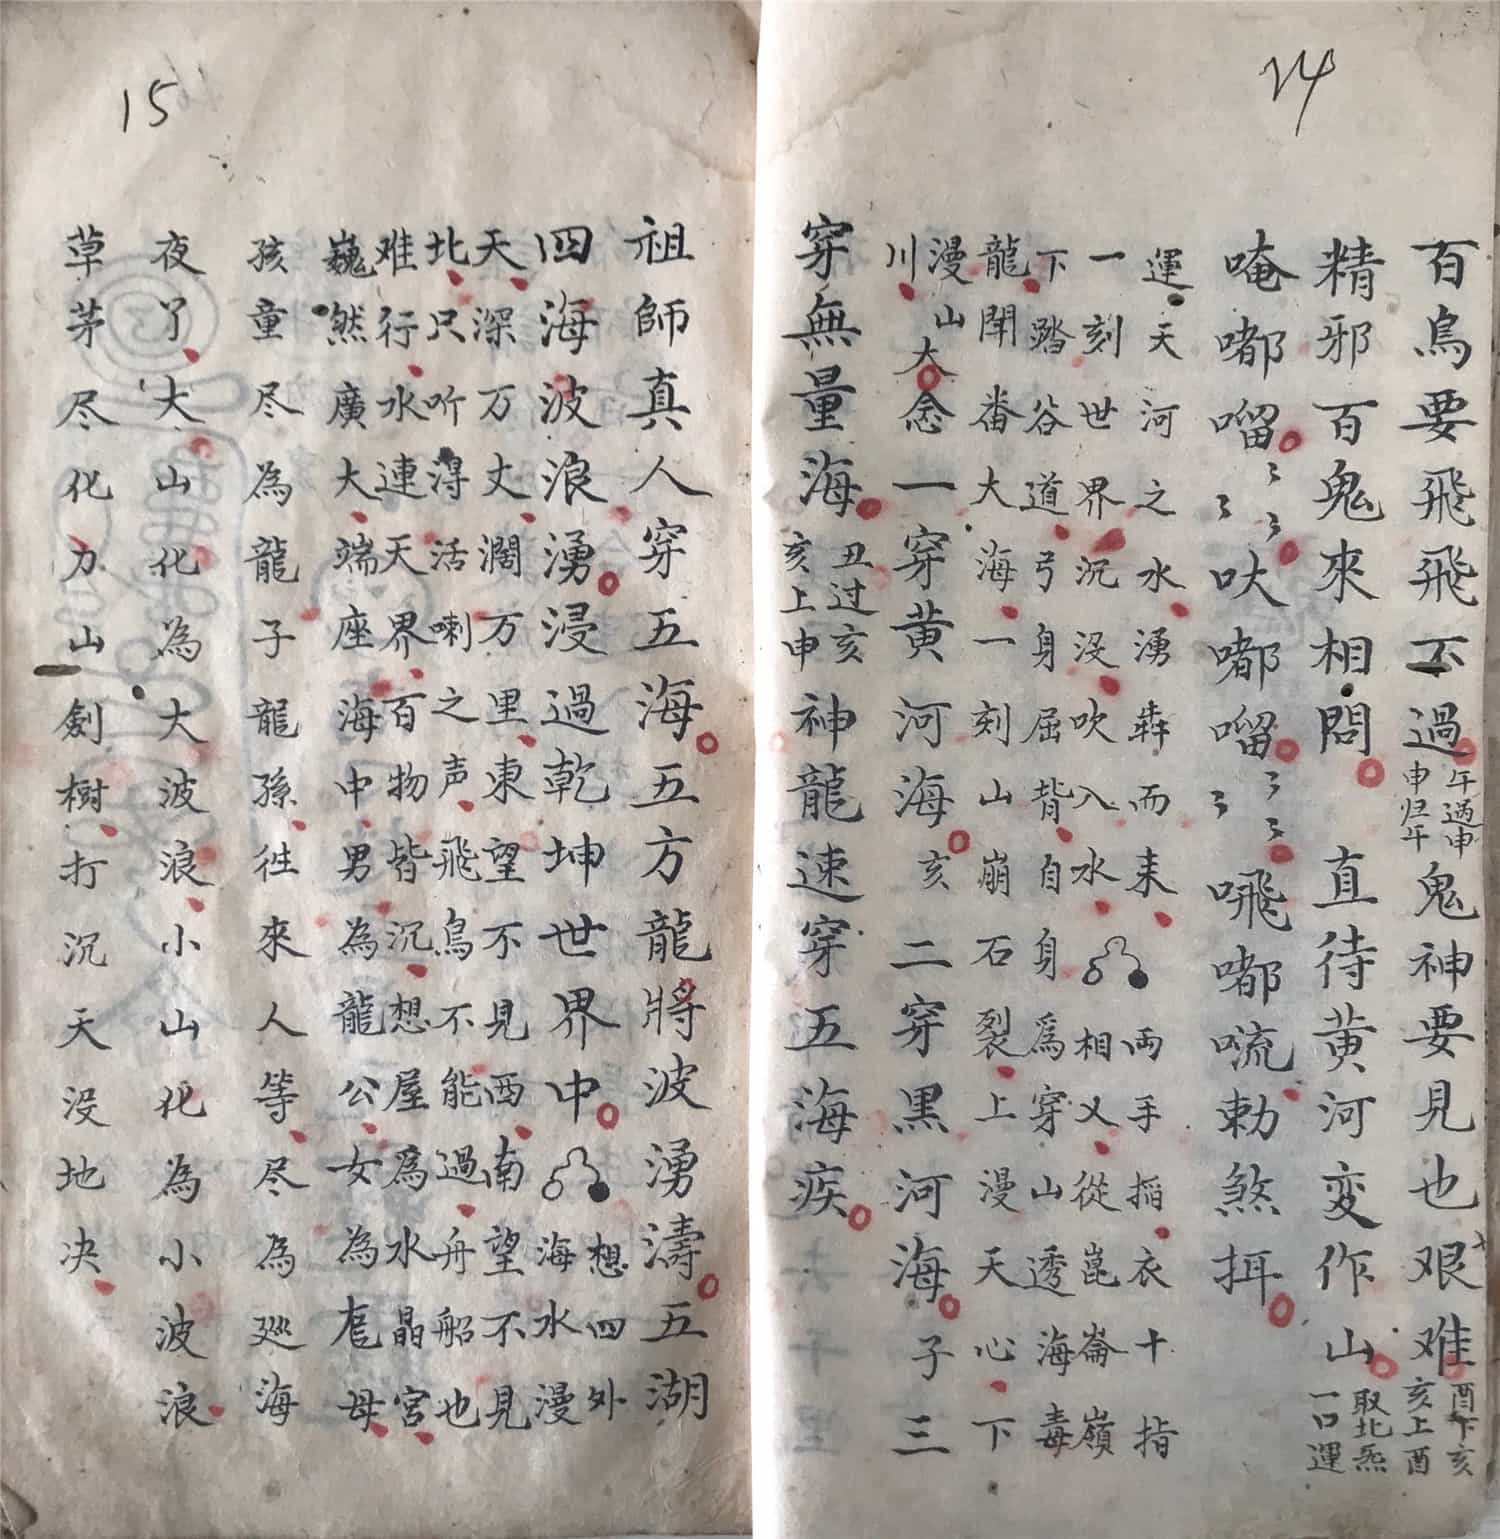 14
百鳥要飛飛不過
午過申
申归午
鬼神要見也艰难
酉下亥
亥上酉
精邪百鬼來相問 直待黄河变作山
取北炁
一口運
唵嘟𠺕ミミミ吠嘟𠺕ミミミ嘟勅煞挕
運天河之水湧犇而来 両手搯衣十指
一刻世界沉没吹入水 相乂從崑崙嶺
下踏谷道弓身屈背自身爲穿山透海毒
龍開番大海一刻山崩石裂上漫天心下
漫山
川大
念一穿黄河海亥二穿黑河海子三
穿無量海
丑过亥
亥上申
神龍速穿五海疾
15
祖師真人穿五海五方龍將波湧濤五湖
四海波浪湧浸過乾坤世界中
想四外
海水漫
天深万丈濶万里東望不見西南望不見
北只听淂活喇之声飛鳥不能過舟船也
难行水連天界百物皆沉想屋爲水晶宮
巍然廣大端座海中男為龍公女為龙母
孩童尽為龍子龍孫往來人等尽為巡海
夜丫大山化為大波浪小山化為小波浪
草茅尽化力山劍樹打沉天没地决